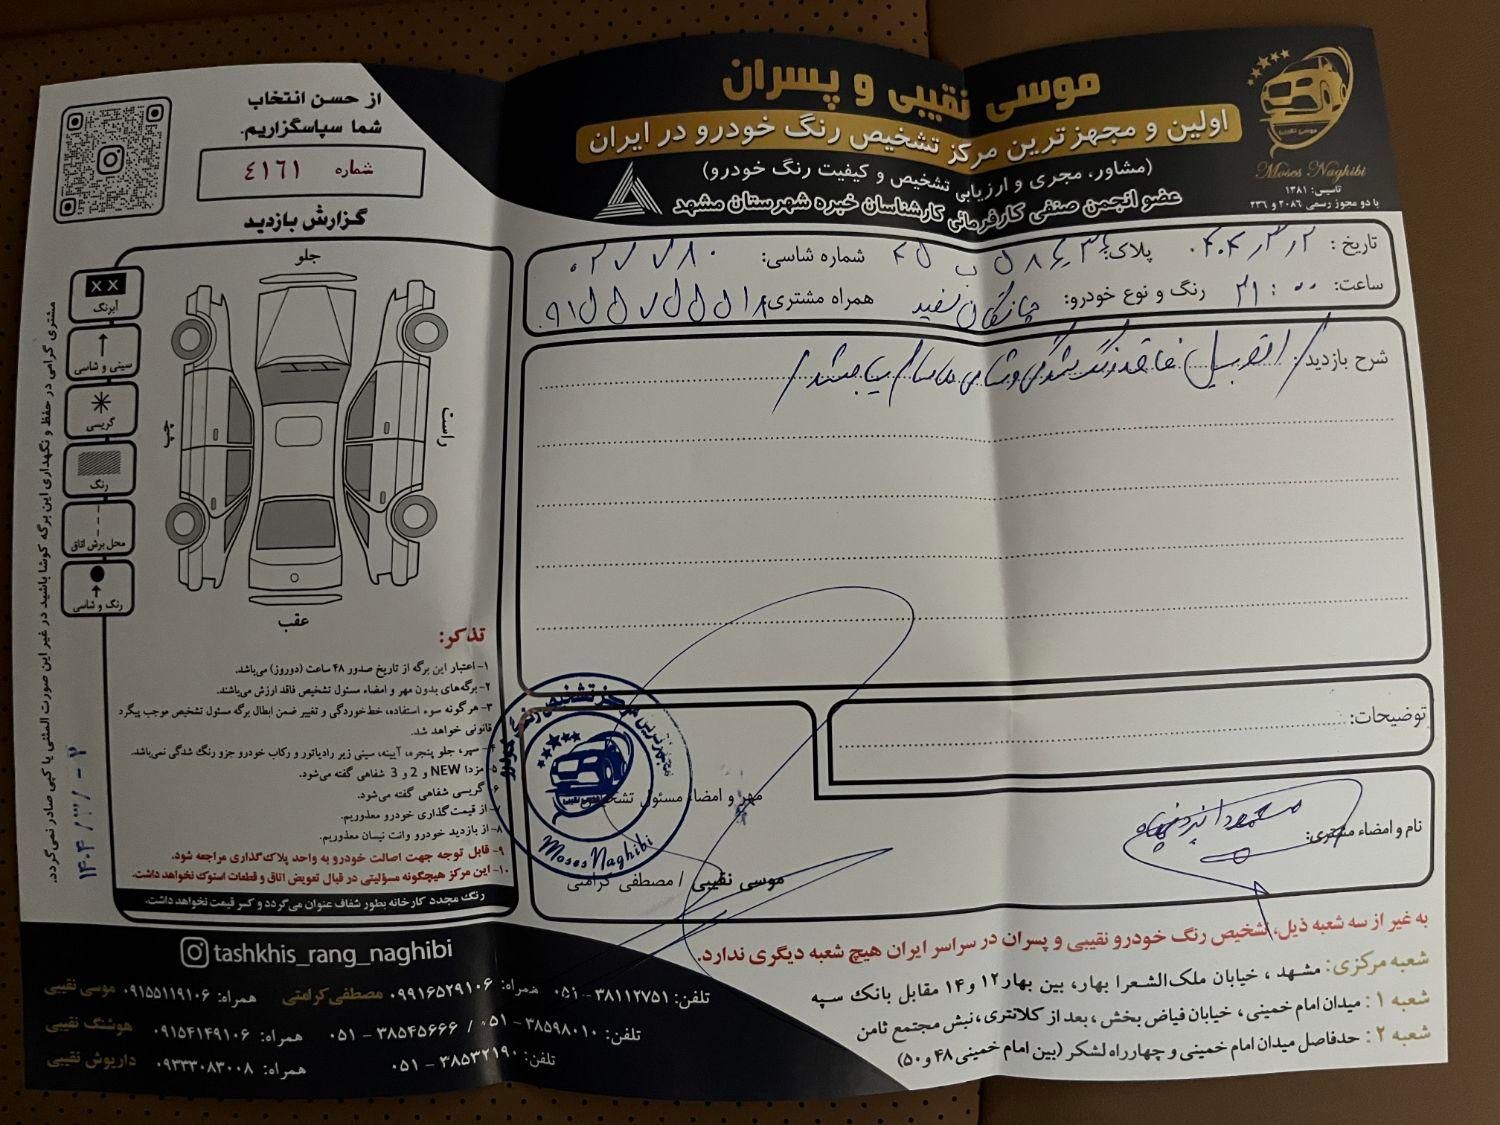 موسی نقیبی و پسران
اولین و مجهزترین مرکز تشخیص رنگ خودرو در ایران
(مشاور، مجری و ارزیابی تشخیص و کیفیت رنگ خودرو)
عضو انجمن صنفی کارفرمائی کارشناسان خبره شهرستان مشهد
موسی نقیبی
Moses Naghibi
تاسیس: ۱۳۸۱
با دو مجوز رسمی ۲۰۸۶ و ۲۳۶
از حسن انتخاب
شما سپاسگزاریم.
شماره ٤١٦١
گزارش بازدید
تاریخ: پلاک: شماره شاسی:
ساعت: ۲۱:۰۰ رنگ و نوع خودرو: چانگان سفید همراه مشتری:
شرح بازدید: اتومبیل فاقد رنگ شدگی و شاسی ها سالم میباشد
توضیحات:
نام و امضاء مشتری:
مهر و امضاء مسئول تشخیص
موسی نقیبی / مصطفی کرامتی
Moses Naghibi
جلو
راست
چپ
عقب
X X
آبرنگ
سینی و شاسی
گریسی
رنگ
محل برش اتاق
رنگ و شاسی
مشتری گرامی در حفظ و نگهداری این برگه کوشا باشید در غیر این صورت المثنی یا کپی صادر نمی‌گردد.
تذکر:
۱- اعتبار این برگه از تاریخ صدور ۴۸ ساعت (دوروز) می‌باشد.
۲- برگه‌های بدون مهر و امضاء مسئول تشخیص فاقد ارزش می‌باشند.
۳- هرگونه سوء استفاده، خط‌خوردگی و تغییر ضمن ابطال برگه مسئول تشخیص موجب پیگرد
قانونی خواهد شد.
سپر، جلو پنجره، آیینه، سینی زیر رادیاتور و رکاب خودرو جزو رنگ شدگی نمی‌باشد.
۵- مزدا NEW و 2 و 3 شفاهی گفته می‌شود.
۶- گریسی شفاهی گفته می‌شود.
از قیمت‌گذاری خودرو معذوریم.
۸- از بازدید خودرو وانت نیسان معذوریم.
۹- قابل توجه جهت اصالت خودرو به واحد پلاک‌گذاری مراجعه شود.
۱۰- این مرکز هیچگونه مسؤلیتی در قبال تعویض اتاق و قطعات استوک نخواهد داشت.
رنگ مجدد کارخانه بطور شفاف عنوان می‌گردد و کسر قیمت نخواهد داشت.
به غیر از سه شعبه ذیل، تشخیص رنگ خودرو نقیبی و پسران در سراسر ایران هیچ شعبه دیگری ندارد.
شعبه مرکزی: مشهد، خیابان ملک‌الشعرا بهار، بین بهار۱۲ و ۱۴ مقابل بانک سپه
شعبه ۱: میدان امام خمینی، خیابان فیاض بخش، بعد از کلانتری، نبش مجتمع ثامن
شعبه ۲: حدفاصل میدان امام خمینی و چهارراه لشکر (بین امام خمینی ۴۸ و ۵۰)
tashkhis_rang_naghibi
تلفن: ۳۸۱۱۲۷۵۱ - ۰۵۱ همراه: ۰۹۹۱۶۵۲۹۱۰۶ مصطفی کرامتی همراه: ۰۹۱۵۵۱۱۹۱۰۶ موسی نقیبی
تلفن: ۳۸۵۹۸۰۱۰ - ۰۵۱ / ۳۸۵۴۵۶۶۶ - ۰۵۱ همراه: ۰۹۱۵۴۱۴۹۱۰۶ هوشنگ نقیبی
تلفن: ۳۸۵۳۲۱۹۰ - ۰۵۱ همراه: ۰۹۳۳۳۰۸۳۰۰۸ داریوش نقیبی